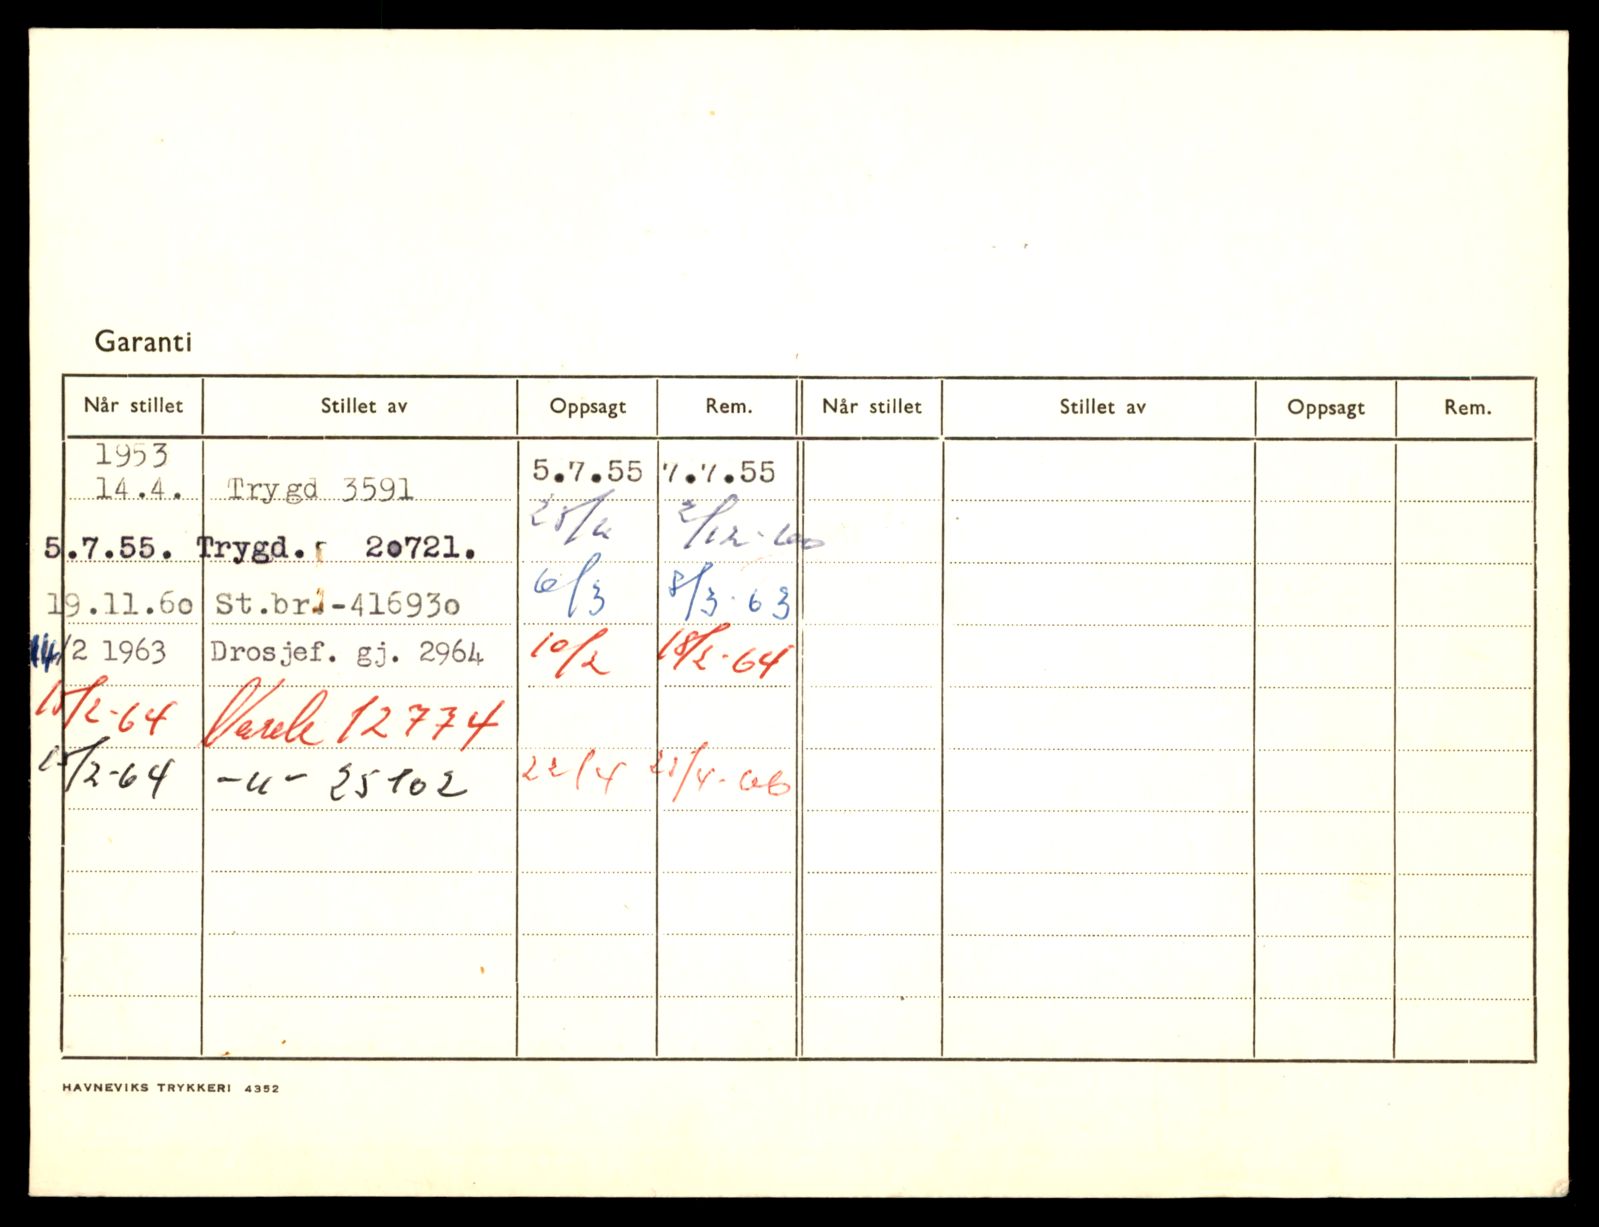 Garanti
Når stillet Stillet av Oppsagt Rem. Når stillet Stillet av Oppsagt Rem.
1953
14.4. Trygd 3591 5.7.55 7.7.55
5.7.55. Trygd. 20721. 25/11 2/12-60
19.11.60 St.br.-416930 6/3 8/3-63
14/2 1963 Drosjef. gj. 2964 10/2 18/2-64
15/2-64 12774
15/2-64 -"- 25102 22/4 25/4-66
HAVNEVIKS TRYKKERI 4352